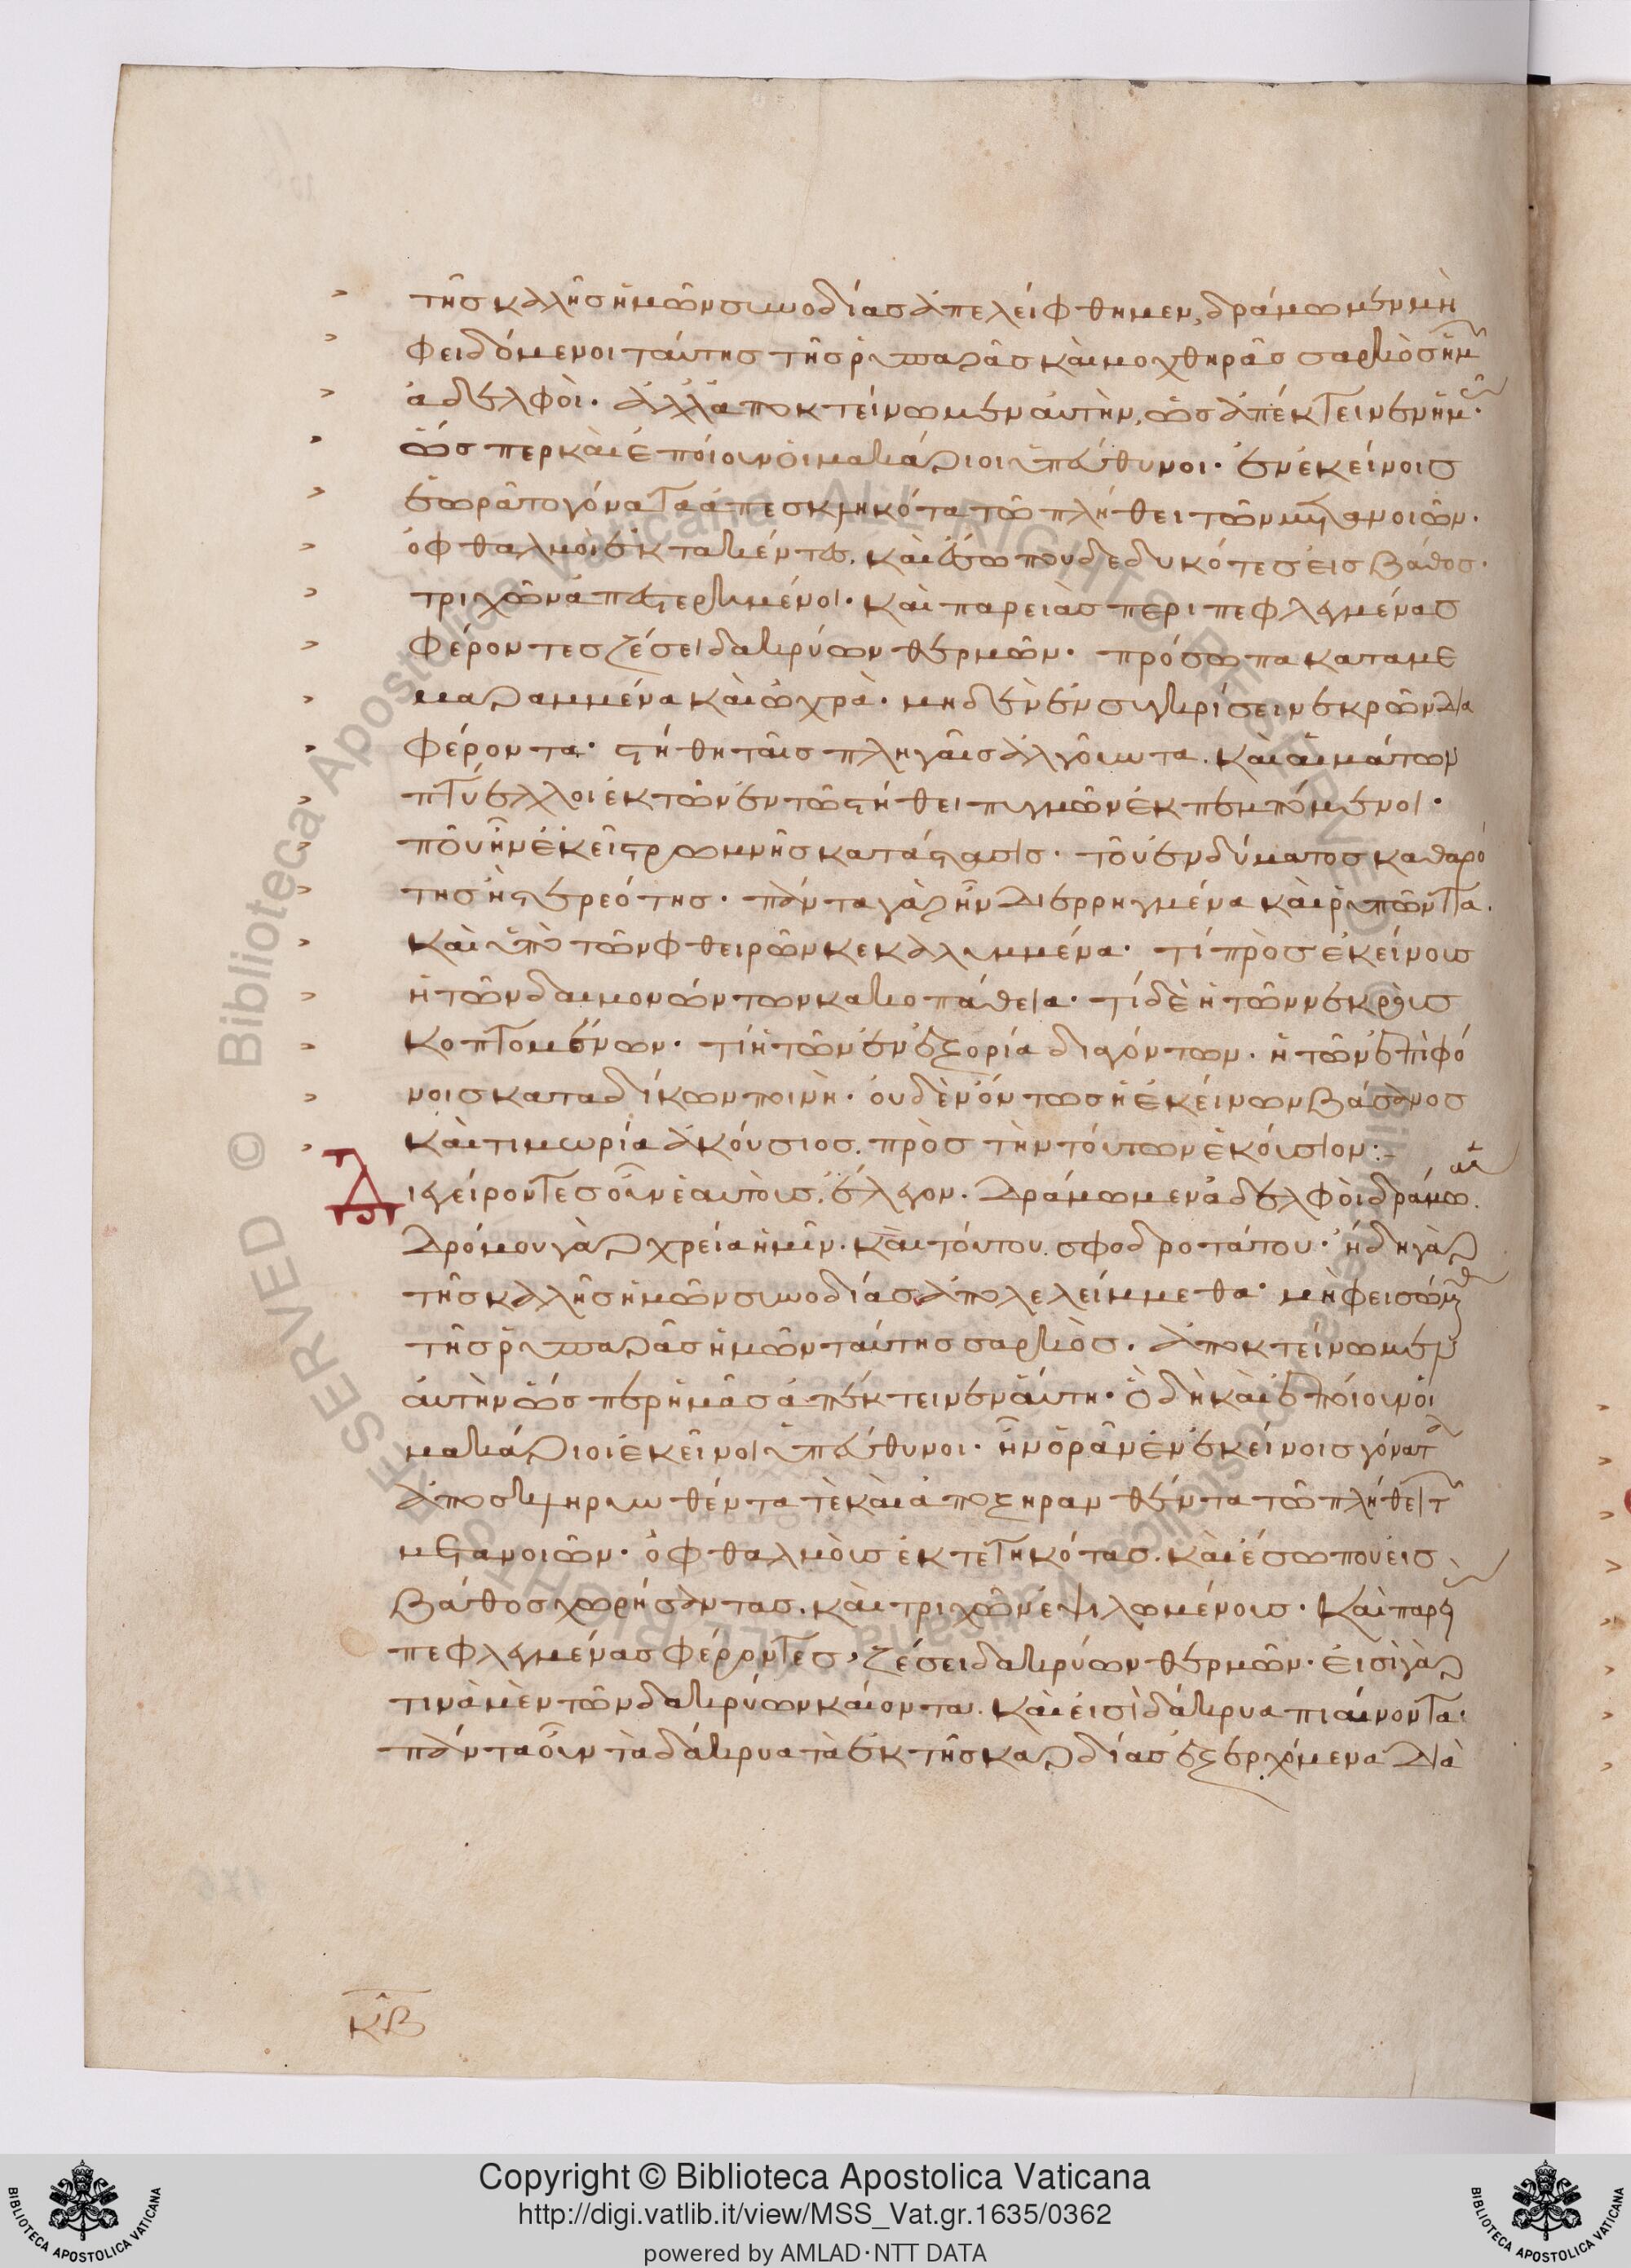 τῆς καλῆς ἡμῶν συνοδίας ἀπελείφθημεν, δράμωμεν μὴ
φειδόμενοι ταύτης τῆς ῥυπαρᾶς καὶ μοχθηρᾶς σαρκὸς ἡμ
ἀδελφοὶ. ἀλλ' ἀποκτείνωμεν αὐτὴν, ὡς ἀπέκτεινεν ἡμ.
ὥσπερ καὶ ἐποίουν οἱ μακάριοι ὑπεύθυνοι. ἐν ἐκείνοις
ἑωρᾶτο γόνατα ἀπεσκληκότα τῶ πλήθει τῶν μετανοιῶν.
ὀφθαλμοὶ ἐκτακέντες. καὶ ἔσω που δεδυκότες εἰς βάθος.
τριχῶν ἀπεστερημένοι. καὶ παρειὰς περιπεφλεγμένας
φέροντες ζέσει δακρύων θερμῶν. πρόσωπα καταμε
μαραμμένα καὶ ὠχρὰ. μηδὲν ἐν συγκρίσει νεκρῶν δια
φέροντα. στήθη ταῖς πληγαῖς ἀλγοῦντα. καὶ αἱμάτων
πτύελλοι ἐκ τῶν ἐν τῶ στήθει πυγμῶν ἐκπεμπόμενοι.
ποῦ ἦν ἐκεῖ στρωμνῆς κατάστασις. ποῦ ἐνδύματος καθαρό
της ἢ στερεότης. πάντα γὰρ ἦν διερρηγμένα καὶ ῥυπῶντα.
καὶ ὑπὸ τῶν φθειρῶν κεκαλυμμένα. τί πρὸς ἐκείνους
ἡ τῶν δαιμονώντων κακοπάθεια. τί δὲ ἡ τῶν νεκροὺς
κοπτομένων. τί ἡ τῶν ἐν ἐξορία διαγόντων. ἡ τῶν ἐπὶ φό
νοις καταδίκων ποινὴ. οὐδὲν ὄντως ἡ ἐκείνων βάσανος
καὶ τιμωρία ἀκούσιος. πρὸς τὴν τούτων ἑκούσιον:-
Διεγείροντες οὖν ἑαυτοὺς, ἔλεγον. δράμωμεν ἀδελφοὶ δράμω.
δρόμου γὰρ χρεία ἡμῖν. καὶ τούτου σφοδροτάτου. ἤδη γὰρ
τῆς καλῆς ἡμῶν συνοδίας ἀπολελείμμεθα. μὴ φεισώμεθ
τῆς ῥυπαρᾶς ἡμῶν ταύτης σαρκὸς. ἀποκτείνωμεν
αὐτὴν ὥσπερ ἡμᾶς ἀπέκτεινεν αὕτη. ὃ δὴ καὶ ἐποίουν οἱ
μακάριοι ἐκεῖνοι ὑπεύθυνοι. ἦν ὁρᾶν ἐν ἐκείνοις γόνατ
ἀποσκληρυνθέντα τὲ καὶ ἀποξηρανθέντα τῶ πλήθει τ
μετανοιῶν. ὀφθαλμοὺς ἐκτετηκότας. καὶ ἔσω που εἰς
βάθος χωρήσαντας. καὶ τριχῶν ἐψιλωμένους. καὶ παρει
πεφλεγμένας φέροντες, ζέσει δακρύων θερμῶν. εἰσὶ γὰρ
τινὰ μὲν τῶν δακρύων καίοντα. καὶ εἰσὶ δάκρυα πιαίνοντα.
πάντα οὖν τὰ δάκρυα τὰ ἐκ τῆς καρδίας ἐξερχόμενα διὰ
κβ
Copyright © Biblioteca Apostolica Vaticana
http://digi.vatlib.it/view/MSS_Vat.gr.1635/0362
powered by AMLAD·NTT DATA
BIBLIOTECA APOSTOLICA VATICANA
BIBLIOTECA APOSTOLICA VATICANA